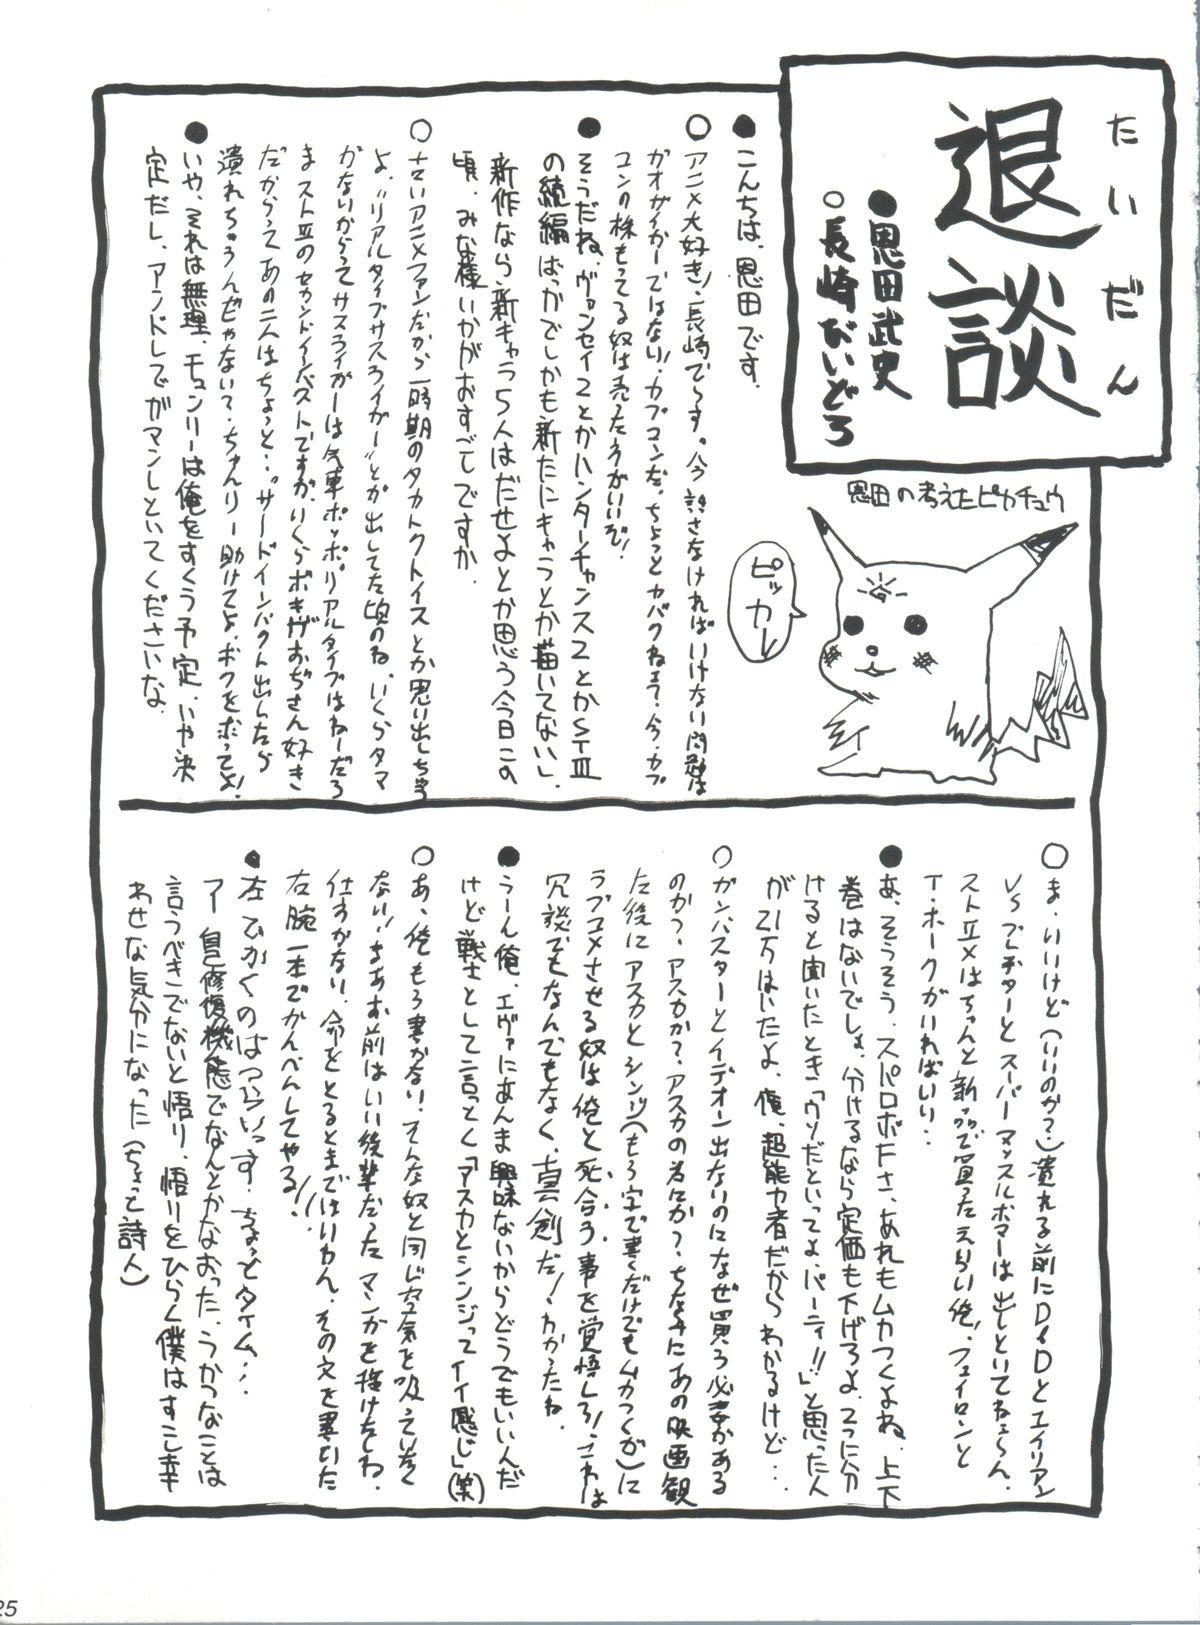 たいだん
退談
●恩田武史
○長崎びいどろ
恩田の考えたピカチュウ
ピッカー
●こんちは、恩田です。
○アニメ大好き!長崎でらす。今話さなければいけない問題は
ガオガイガーではない!カプコンだ。ちょっとカバクねェ?今、カプ
コンの株もってる奴は売った方がいいぞ!
●そうだね、ヴァンセイ2とかハンターチャンス2とかSTⅢ
の続編ばっかでしかも新たにキャラとか描いてない、
新作なら新キャラ5人はだせよとか思う今日この
頃、みな様いかがおすごしですか。
○古いアニメファンだから一時期のタカトクトイスとか思い出しちゃう
よ。"リアルタイプサスライガー"とか出してた頃のね、いくらタマ
がないからってサスライガーは汽車ポッポ。リアルタイプはねーだろ
まストⅢのセカンドインパクトですが、いくらボキがおぢさん好き
だからってあの二人はちょっと…"サードインパクト出したら
潰れちゃうんぢゃない?ちゅんリー助けてよ、ボクをホってよ!
●いや、それは無理、チュンリーは俺をすくう予定、いや決
定だし、アンドレでガマンしといてくださいな。
○ま、いいけど(いいのか?)潰れる前にD&Dとエイリアン
VSプレデターとスーパーマッスルボマーは出しといてねェ〜ん。
ストⅡXはちゃんと新品で買ったえらい俺!フェイロンと
T・ホークがいればいい…
●あ、そうそう、スパロボFさ、あれもムカつくよね、上下
巻はないでしょ、分けるなら定価も下げろよ、2つに分
けると聞いたとき「ウソだといってよ、バーディ!!」と思った人
が21万はいたよ、俺、超能力者だからわかるけど…
○ガンバスターとイデオン出ないのになぜ買う必要がある
のか?アスカか?アスカの為にか?ちなみにあの映画観
た後にアスカとシンジ(もう字で書くだけでもムカつくが)に
ラブコメさせる奴は俺と死合う事を覚悟しろ!これは
冗談でもなんでもなく、真剣だ!わかったね。
●うーん俺、エヴァにあんま興味ないからどうでもいいんだ
けど戦士として言っとく「アスカとシンジってイイ感じ」(笑)
○あ、俺もう書かない。そんな奴と同じ空気を吸っていたく
ない!まあお前はいい後輩だったマンガを描けたしね
仕方がない、命をとるとまではいわん、その文を書いた
右腕一本でかんべんしてやる!!
●左でかくのはつらいっす、ちょっとタイム…
アー自己修復機能でなんとかなおった、うかつなことは
言うべきでないと悟り、悟りをひらく僕はすこし幸
わせな気分になった(ちょっと詩人)
25